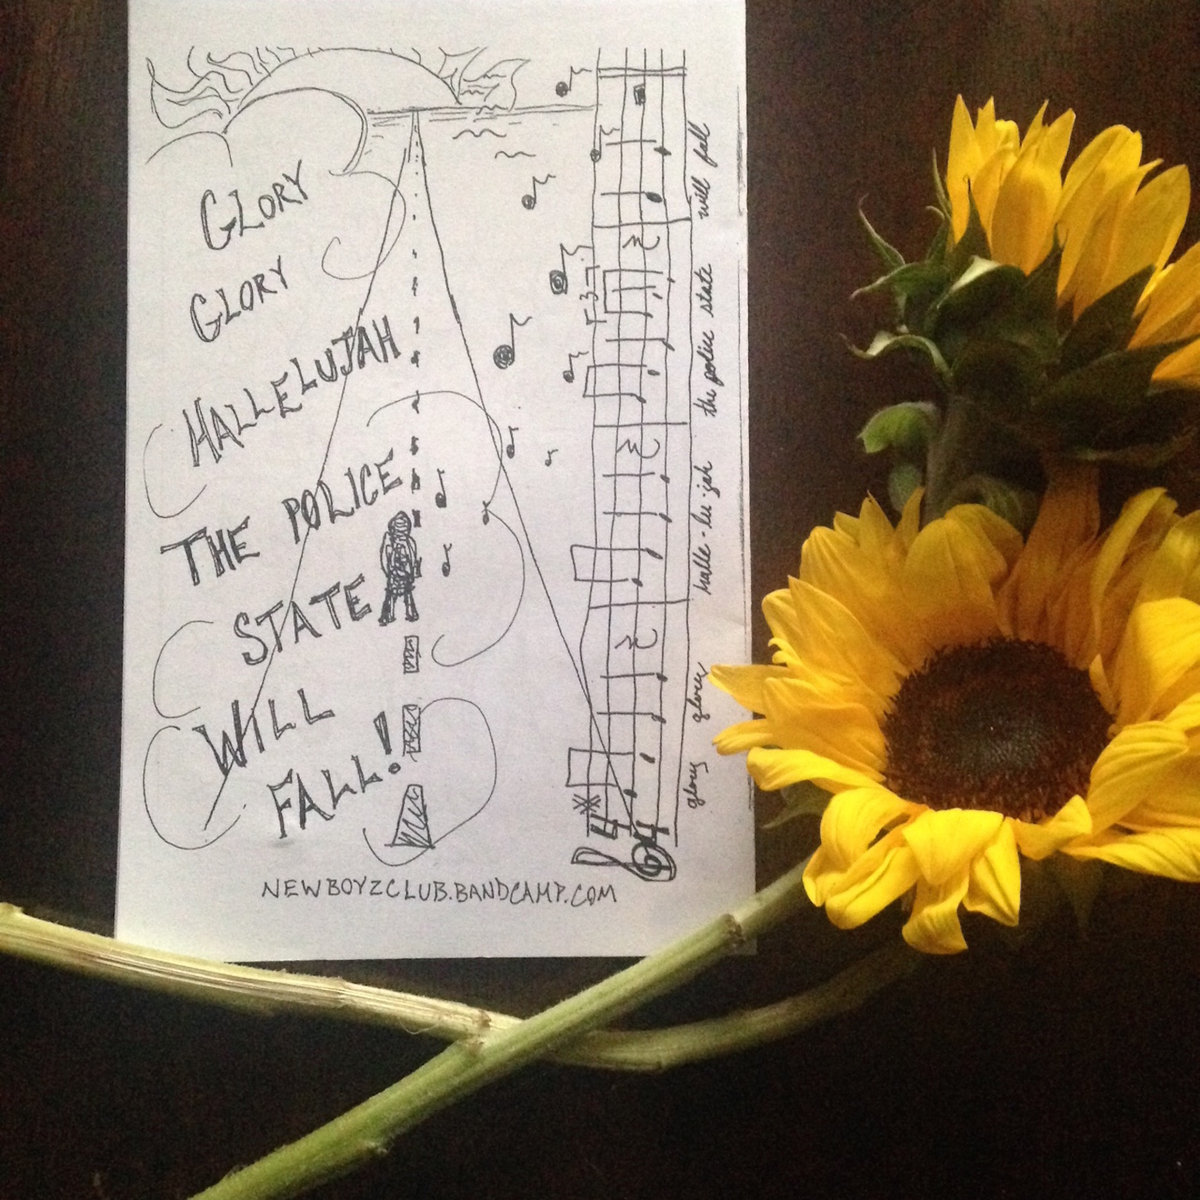 GLORY
GLORY
HALLELUJAH
THE POLICE
STATE
WILL
FALL!
NEWBOYZCLUB.BANDCAMP.COM
glory glory halle-lu-jah the police state will fall
3
4
4